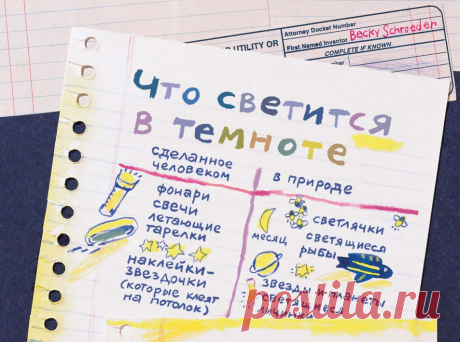 Attorney Docket Number
UTILITY OR
First Named Inventor
Becky Schroeder
COMPLETE IF KNOWN
Что светится
в темноте
сделанное
человеком
фонари
свечи
летающие
тарелки
наклейки-
звездочки
(которые клеят
на потолок)
в природе
светлячки
месяц
светящиеся
рыбы
звезды и планеты
светящиеся
личинки
posta-ru.ru